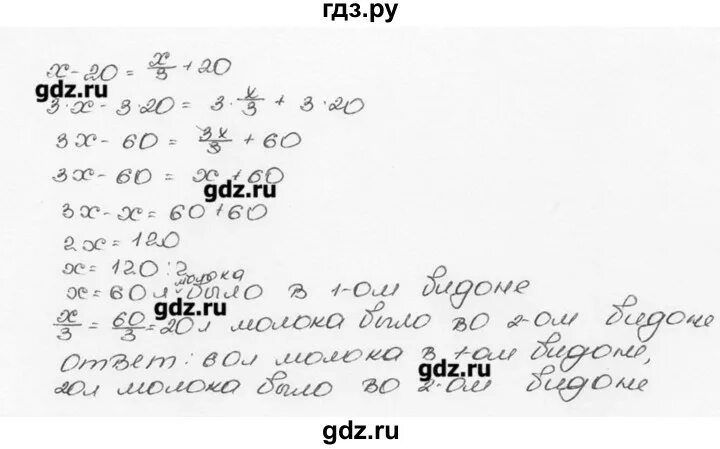 гдз.ру
x - 20 = x/3 + 20
gdz.ru
3·x - 3·20 = 3·x/3 + 3·20
3x - 60 = 3x/3 + 60
3x - 60 = x + 60
gdz.ru
3x - x = 60 + 60
2x = 120
x = 120 : 2
молока
x = 60 л было в 1-ом бидоне
gdz.ru
x/3 = 60/3 = 20 л молока было во 2-ом бидоне
Ответ: 60л молока в 1-ом бидоне,
gdz.ru
20л молока было во 2-ом бидоне
gdz.ru